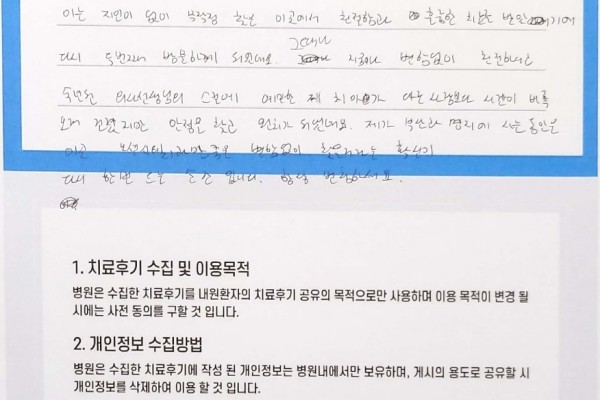 아는 지인이 없이 무작정 찾은 이곳에서 친절함과 훌륭한 치료를 받았
다시 두번째 방문하게 되었네요. 그때나 지금이나 변함없이 친절하시고
숙련된 의사선생님의 스킬에 예민한 제 치아가 다른 사람보다 시간이 비록
오래 걸렸지만 안정을 찾고 완치가 되었네요. 제가 부산과 명지에 사는 동안은
이곳 변함없이 확신이
다시 한번 드는 순간 입니다. 항상 번창하세요.
1. 치료후기 수집 및 이용목적
병원은 수집한 치료후기를 내원환자의 치료후기 공유의 목적으로만 사용하며 이용 목적이 변경 될
시에는 사전 동의를 구할 것 입니다.
2. 개인정보 수집방법
병원은 수집한 치료후기에 작성 된 개인정보는 병원내에서만 보유하며, 게시의 용도로 공유할 시
개인정보를 삭제하여 이용 할 것 입니다.